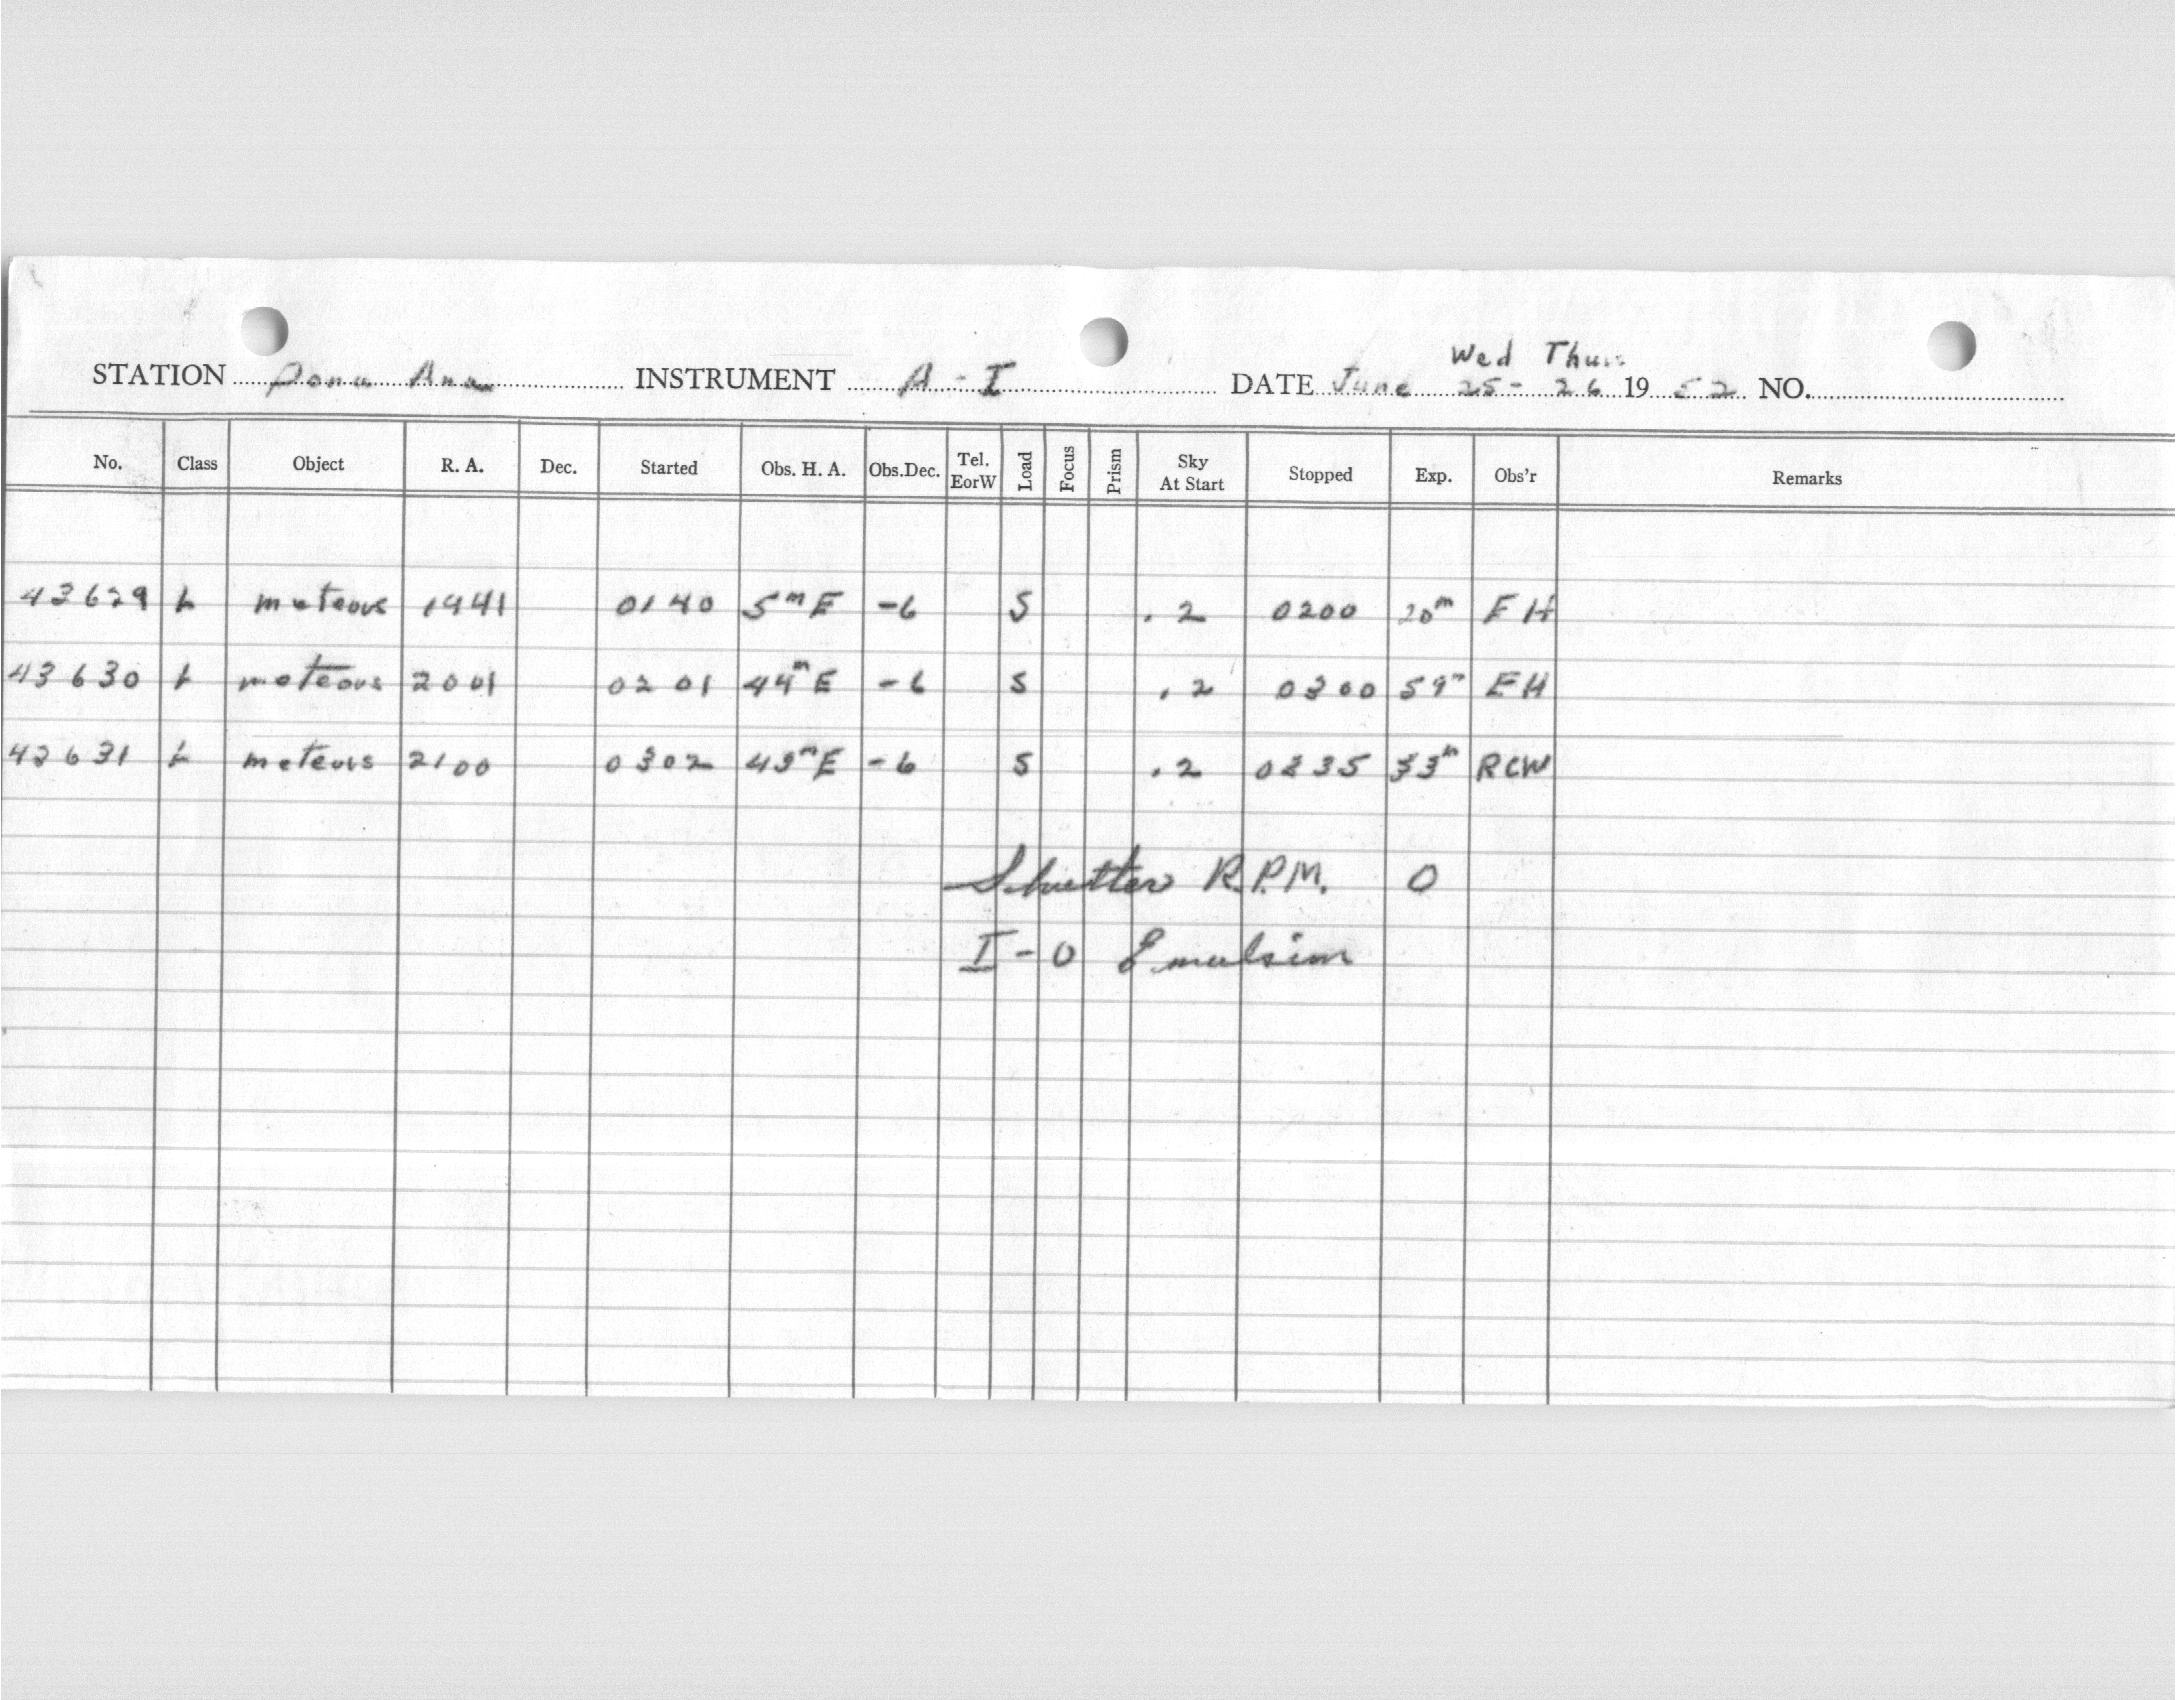 Wed Thurs
STATION Dona Ana INSTRUMENT A-I DATE June 25-26 1952 NO.
No. Class Object R. A. Dec. Started Obs. H. A. Obs.Dec. Tel. EorW Load Focus Prism Sky At Start Stopped Exp. Obs'r Remarks
43629 L meteors 1941 0140 5m E -6 S .2 0200 20m EH
43630 L meteors 2001 0201 44m E -6 S .2 0300 59m EH
43631 L meteors 2100 0302 43m E -6 S .2 0335 33m RCW
Shutter R.P.M. 0
I-O Emulsion